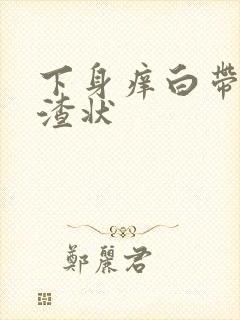 下身痒白带
渣状
鄭麗君